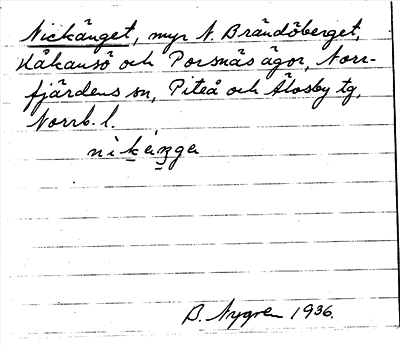 Nickänget, myr N. Brändöberget,
Håkansö och Porsnäs ägor, Norr-
fjärdens sn, Piteå och Älvsby tg,
Norrb. l.
nikänga
B. Nygren 1936.